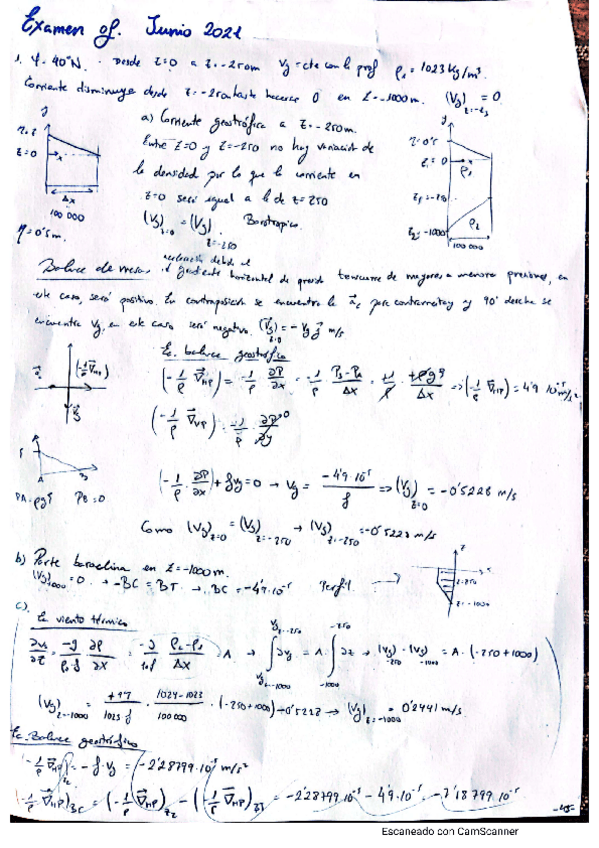 Examen of. Junio 2021
1. φ = 40°N. Desde z=0 a z=-250m Vg=cte con la prof ρ1 = 1023 kg/m³.
Corriente disminuye desde z=-250 hasta hacerse 0 en z=-1000m. (Vg) = 0
z=-z3
a) Corriente geostrófica a z=-250m.
Entre z=0 y z=-250 no hay variación de
la densidad por lo que la corriente en
z=0 será igual a la de z=250
(Vg) z=0 = (Vg) z=-250 . Barotrópico.
z=0
Δx
100 000
η=0's m.
z1=0
ρ1
z1=-250
ρ2
z2=-1000
100 000
aceleración debido al
Balance de masas el gradiente horizontal de presión transcurre de mayores a menores presiones, en
este caso, será positivo. En contraposición se encuentra la para contrarrestar y 90° derecha se
encuentra Vg, en este caso será negativo. (Vg) z=0 = - Vg j m/s
Ec. balance geostrófico
(-1/ρ ∇HP) = -1/ρ · ∂P/∂x = -1/ρ · PB-PA/Δx = +1/ρ · +ρgη/Δx => (-1/ρ ∇HP) = 4'9·10⁻⁵ m/s²
(-1/ρ ∇HP) = -1/ρ · ∂P/∂y 0
PA=ρgη PB=0
(-1/ρ · ∂P/∂x) + fVg = 0 → Vg = -4'9·10⁻⁵/f => (Vg) z=0 = -0'5228 m/s
Como (Vg) z=0 = (Vg) z=-250 → (Vg) z=-250 = -0'5228 m/s
b) Parte baroclina en z=-1000m.
(Vg)1000 = 0. → -BC = BT → BC = -4'9·10⁻⁵ Perfil →
z
z=-250
z=-1000
c). Ec viento térmico
∂Vg/∂z = -g/ρ0·f · ∂ρ/∂x = -g/ρ0·f · ρ2-ρ1/Δx = A → ∫ ∂Vg = A · ∫ ∂z → (Vg) -250 - (Vg) -1000 = A · (-250+1000)
(Vg) z=-1000 = +9'7/1023·f · 1024-1023/100000 · (-250+1000) - 0'5228 → (Vg) z=-1000 = 0'2441 m/s
Ec. Balance geostrófico
-1/ρ ∇HP = -f·Vg = -2'28799·10⁻⁵ m/s²
(-1/ρ ∇HP)BC = (-1/ρ ∇HP)z2 - (-1/ρ ∇HP)z1 = -2'28799·10⁻⁵ - 4'9·10⁻⁵ = -7'18799·10⁻⁵
Escaneado con CamScanner